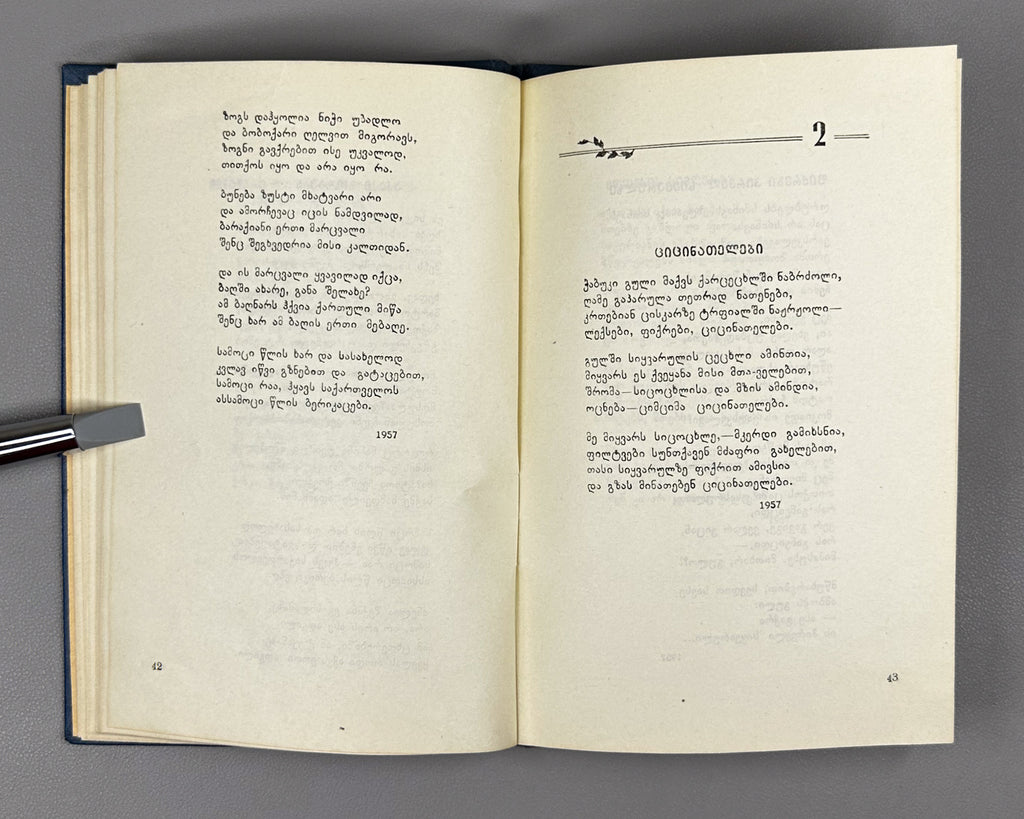 ზოგს დაჰყოლია ნიჭი უბადლო
და ბობოქარი ღელვით მიგორავს,
ზოგნი გავქრებით ისე უკვალოდ,
თითქოს იყო და არა იყო რა.
ბუნება ზუსტი მხატვარი არი
და ამორჩევაც იცის ნამდვილად,
ბარაქიანი ერთი მარცვალი
შენც შეგხვედრია მისი კალთიდან.
და ის მარცვალი ყვავილად იქცა,
ბაღში ახარე, განა შელახე?
ამ ბაღნარს ჰქვია ქართული მიწა
შენც ხარ ამ ბაღის ერთი მებაღე.
სამოცი წლის ხარ და სასახელოდ
კვლავ იწვი გზნებით და გატაცებით,
სამოცი რაა, ჰყავს საქართველოს
ასსამოცი წლის ბერიკაცები.
1957
42
2
ციცინათელები
ჭაბუკი გული მაქვს ქარცეცხლში ნაბრძოლი,
ღამე გაპარულა თეთრად ნათენები,
კრთებიან ცისკარზე ტრფიალში ნაჟრჟოლი—
ლექსები, ფიქრები, ციცინათელები.
გულში სიყვარულის ცეცხლი ამინთია,
მიყვარს ეს ქვეყანა მისი მთა-ველებით,
შრომა—სიცოცხლისა და მზის ამინდია,
ოცნება—ციმციმა ციცინათელები.
მე მიყვარს სიცოცხლე,—მკერდი გამიხსნია,
ფილტვები სუნთქავენ მძაფრი გახელებით,
თასი სიყვარულზე ფიქრით ამივსია
და გზას მინათებენ ციცინათელები.
1957
43